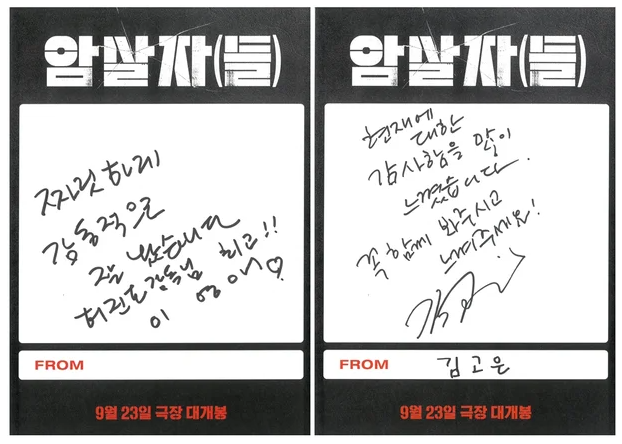 암살자(들)
짜릿하게
감동적으로
잘 봤습니다
허진호 감독님 최고!!
이영애♡
FROM
9월 23일 극장 대개봉
암살자(들)
현재에
대한
감사함을 많이
느꼈습니다.
꼭 함께 봐주시고
느껴주세요!
FROM
김고은
9월 23일 극장 대개봉